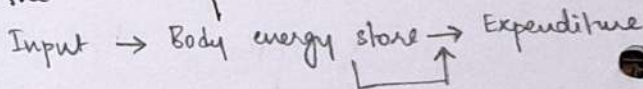 Input → Body energy store → Expenditure